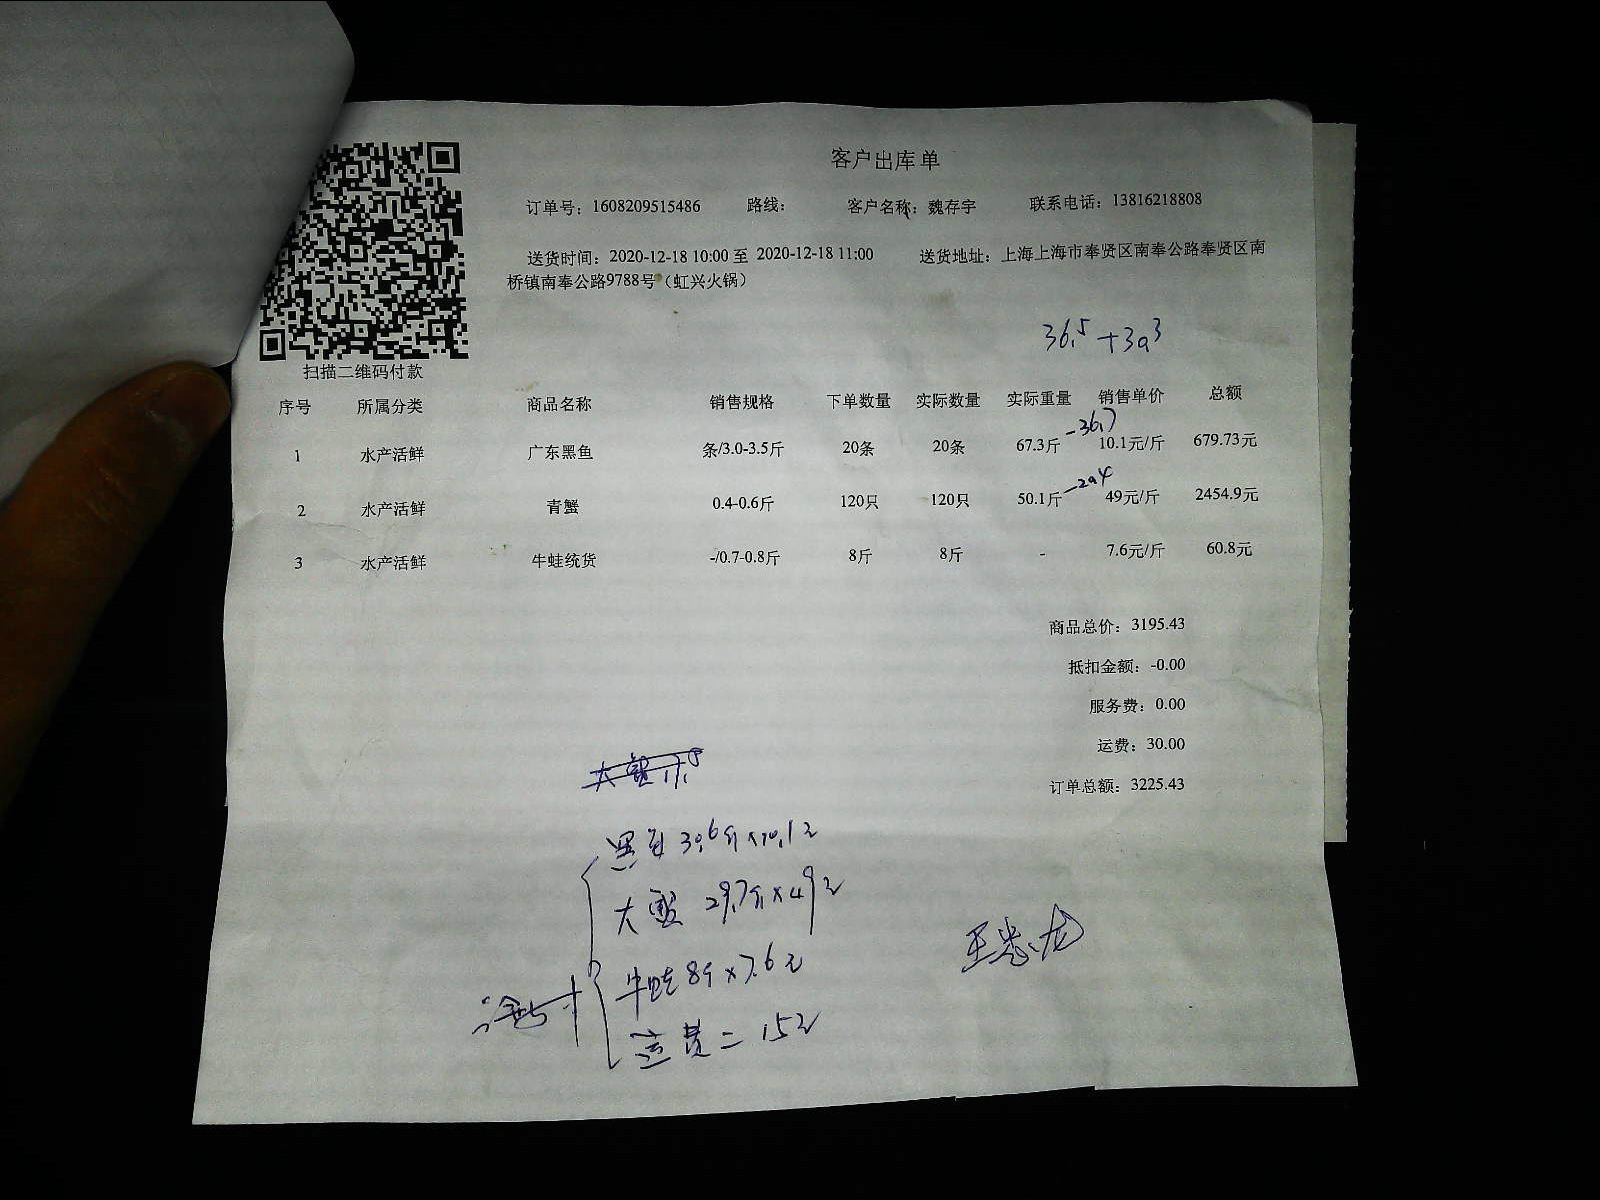 客户出库单
订单号：1608209515486 路线： 客户名称：魏存宇 联系电话：13816218808
送货时间：2020-12-18 10:00 至 2020-12-18 11:00 送货地址：上海上海市奉贤区南奉公路奉贤区南
桥镇南奉公路9788号（虹兴火锅）
扫描二维码付款
序号 所属分类 商品名称 销售规格 下单数量 实际数量 实际重量 销售单价 总额
1 水产活鲜 广东黑鱼 条/3.0-3.5斤 20条 20条 67.3斤 -36.7 10.1元/斤 679.73元
2 水产活鲜 青蟹 0.4-0.6斤 120只 120只 50.1斤 49元/斤 2454.9元
3 水产活鲜 牛蛙统货 -/0.7-0.8斤 8斤 8斤 - 7.6元/斤 60.8元
商品总价：3195.43
抵扣金额：-0.00
服务费：0.00
运费：30.00
订单总额：3225.43
黑鱼 30.6斤×10.1元
大蟹 29.7斤×49元
牛蛙 8斤×7.6元
运费=15元